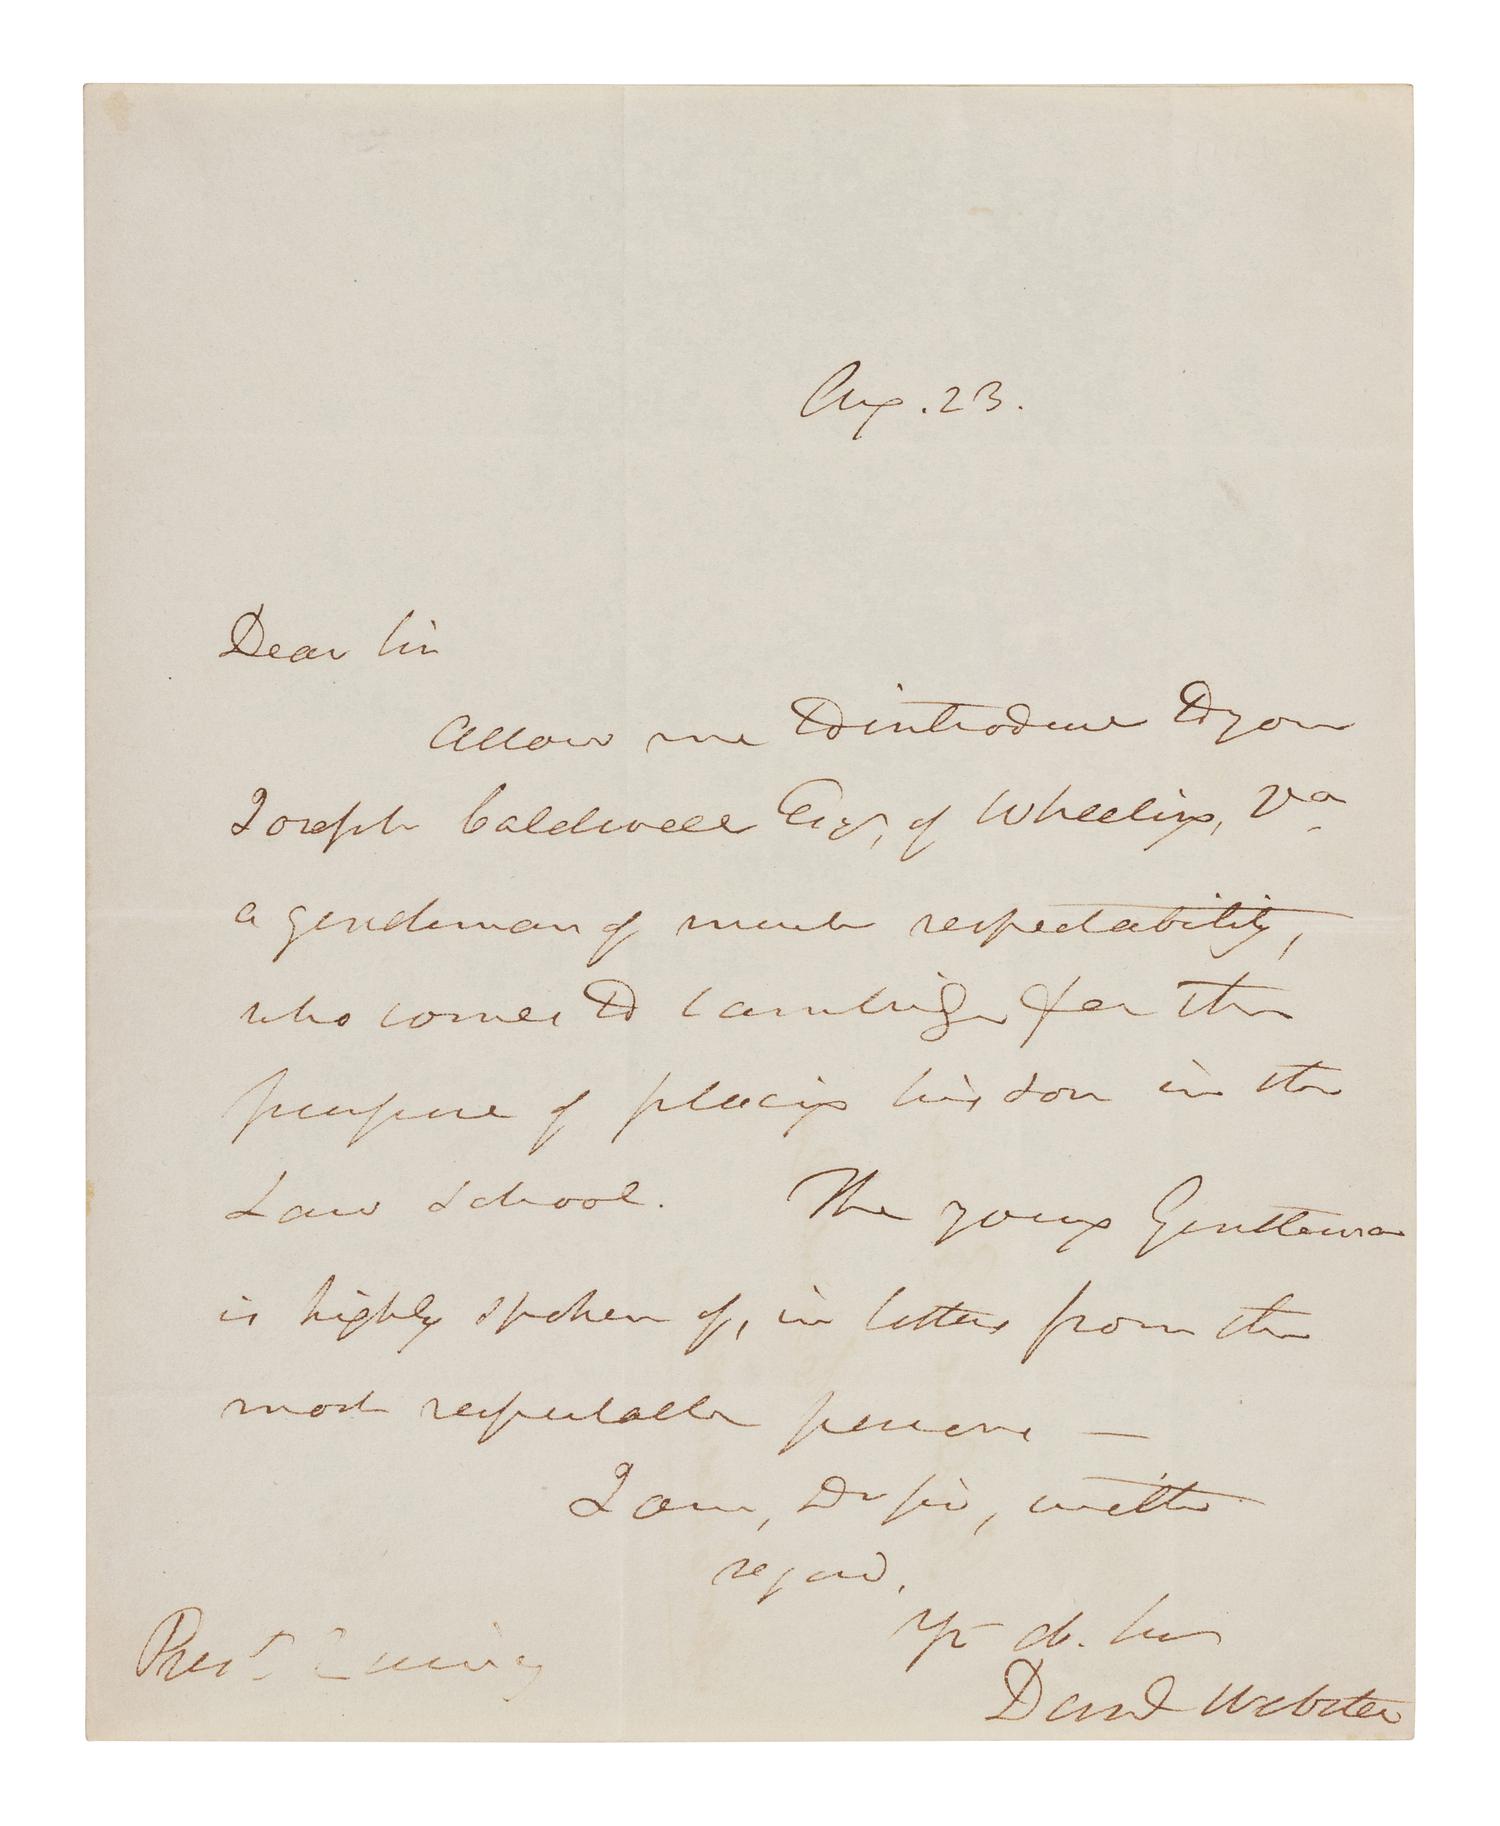 Aug. 23.
Dear Sir
Allow me to introduce to you
Joseph Caldwell Esqr, of Wheeling, Va
a gentleman of much respectability,
who comes to Cambridge for the
purpose of placing his son in the
Law School. The young Gentleman
is highly spoken of, in letters from the
most respectable persons —
I am, Dr Sir, with
regard,
Yr ob. Ser
Danl Webster
Prest Quincy